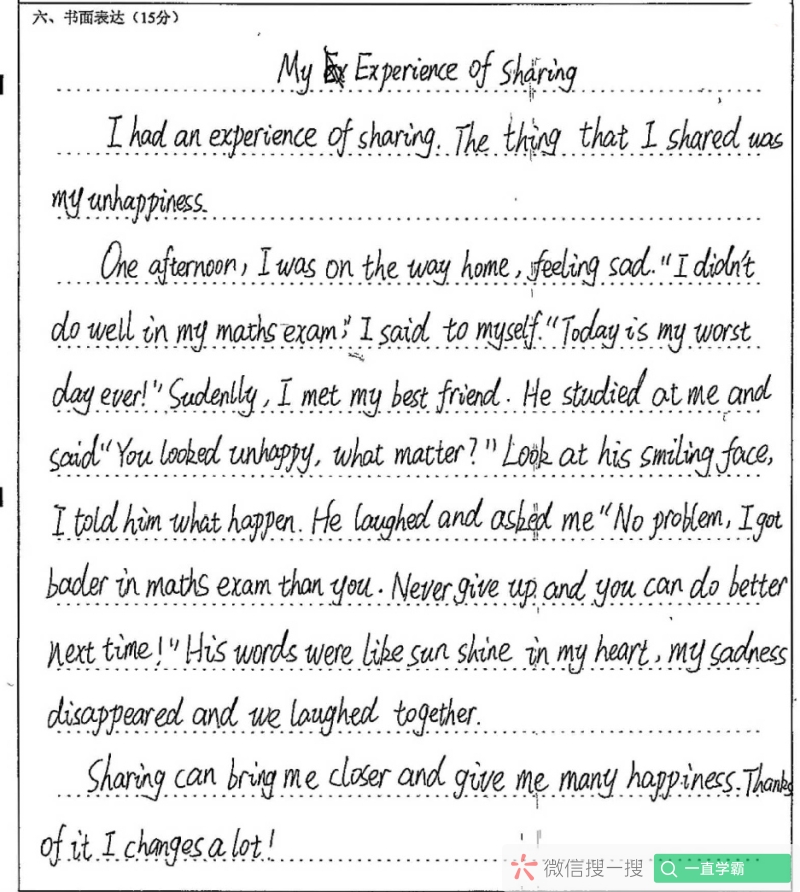 六、书面表达（15分）
My Experience of sharing
I had an experience of sharing. The thing that I shared was
my unhappiness.
One afternoon, I was on the way home, feeling sad. "I didn't
do well in my maths exam," I said to myself. "Today is my worst
day ever!" Sudenlly, I met my best friend. He studied at me and
said "You looked unhappy, what matter?" Look at his smiling face,
I told him what happen. He laughed and asked me "No problem, I got
bader in maths exam than you. Never give up and you can do better
next time!" His words were like sun shine in my heart, my sadness
disappeared and we laughed together.
Sharing can bring me closer and give me many happiness. Thanks
of it I changes a lot!
微信搜一搜 一直学霸